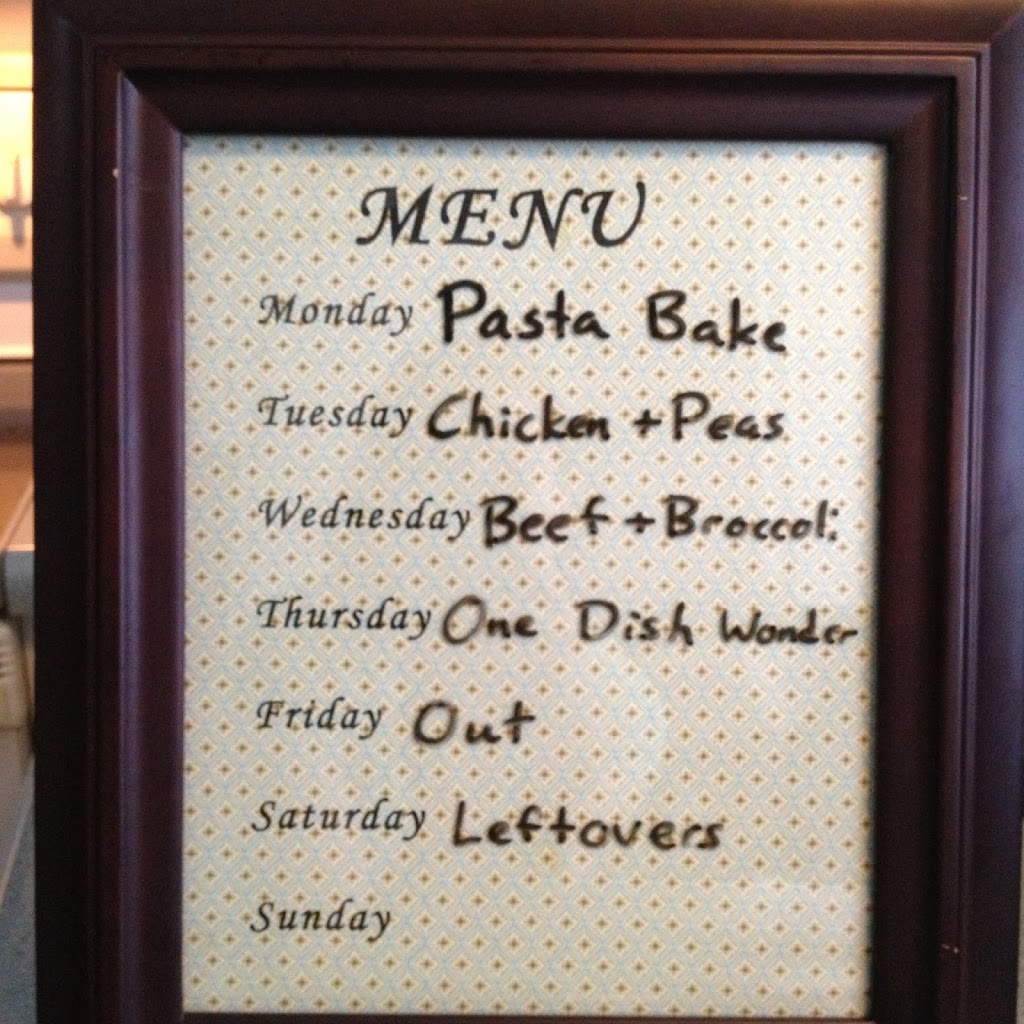 MENU
Monday Pasta Bake
Tuesday Chicken + Peas
Wednesday Beef + Broccoli
Thursday One Dish Wonder
Friday Out
Saturday Leftovers
Sunday